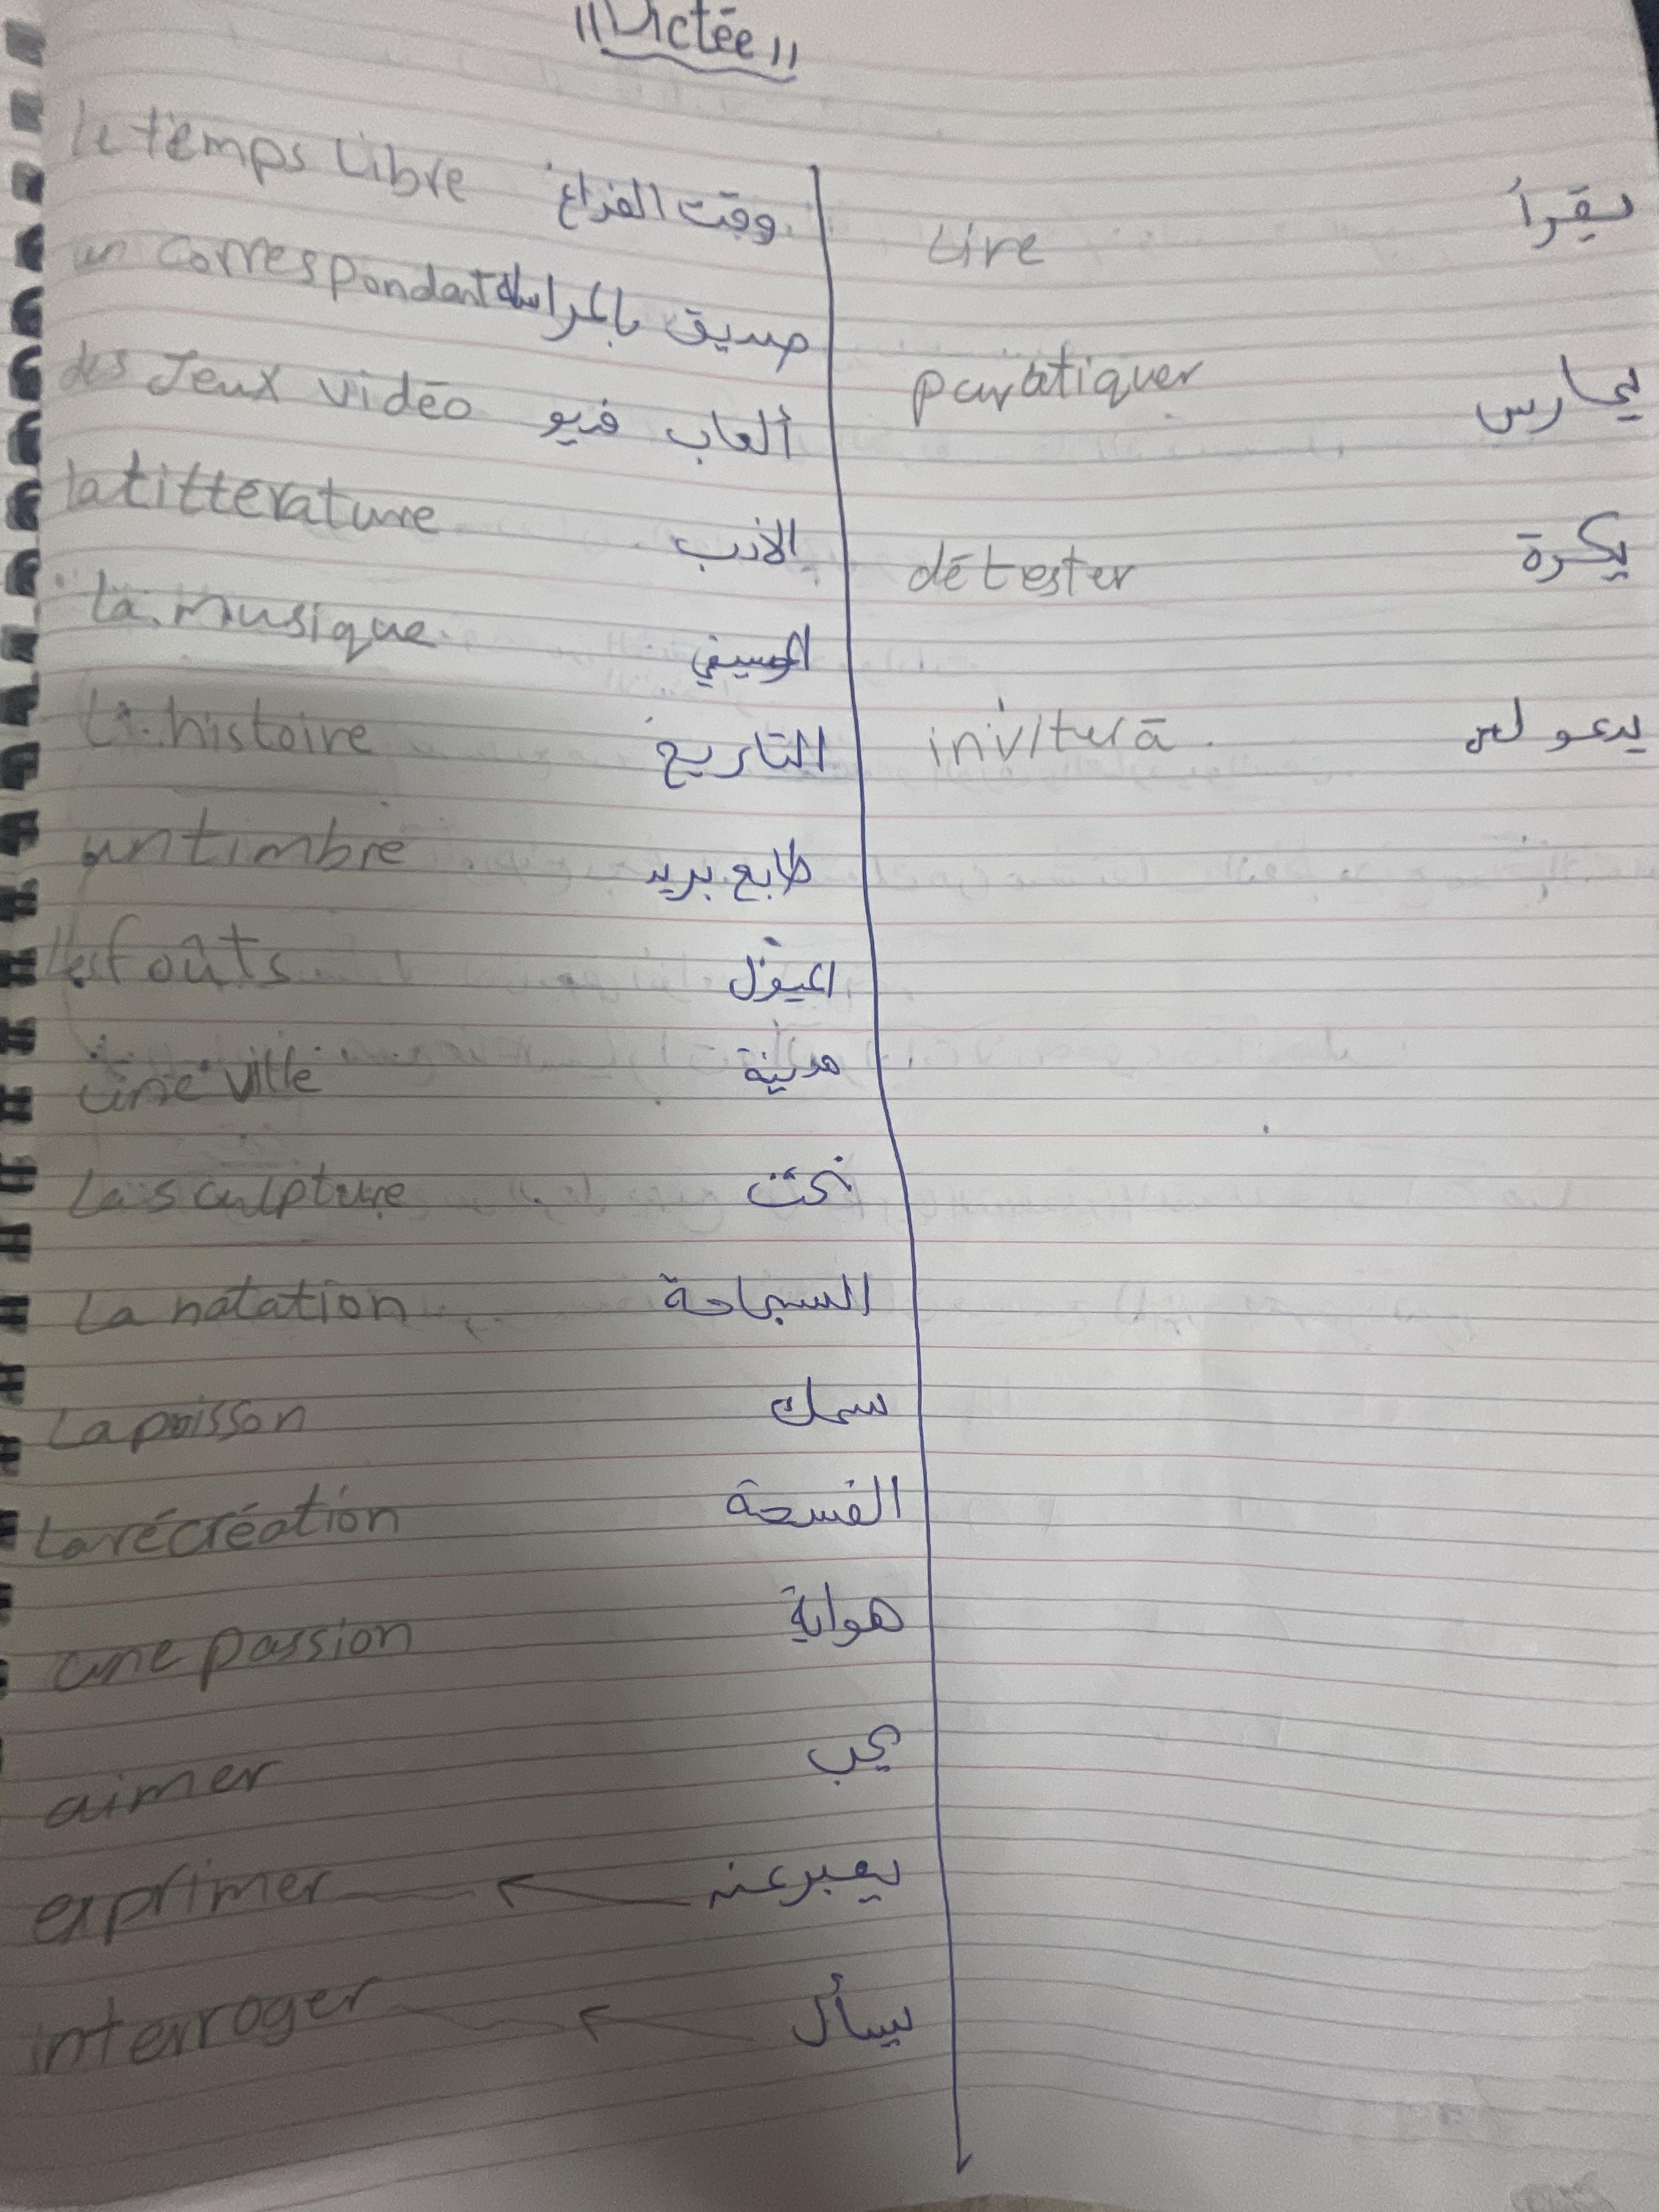 "Dictée"
le temps Libre وقت الفراغ
un correspondant صديق بالمراسلة
des Jeux vidéo ألعاب فديو
la litterature الأدب
la musique الموسيقي
L'histoire التاريخ
un timbre طابع بريد
les الميول
une ville مدينة
La sculpture نحت
La natation السباحة
La poisson سمك
La récréation الفسحة
une passion هواية
aimer يحب
exprimer يعبر عن
interroger يسأل
Lire يقرأ
يمارس
détester يكرة
يدعو